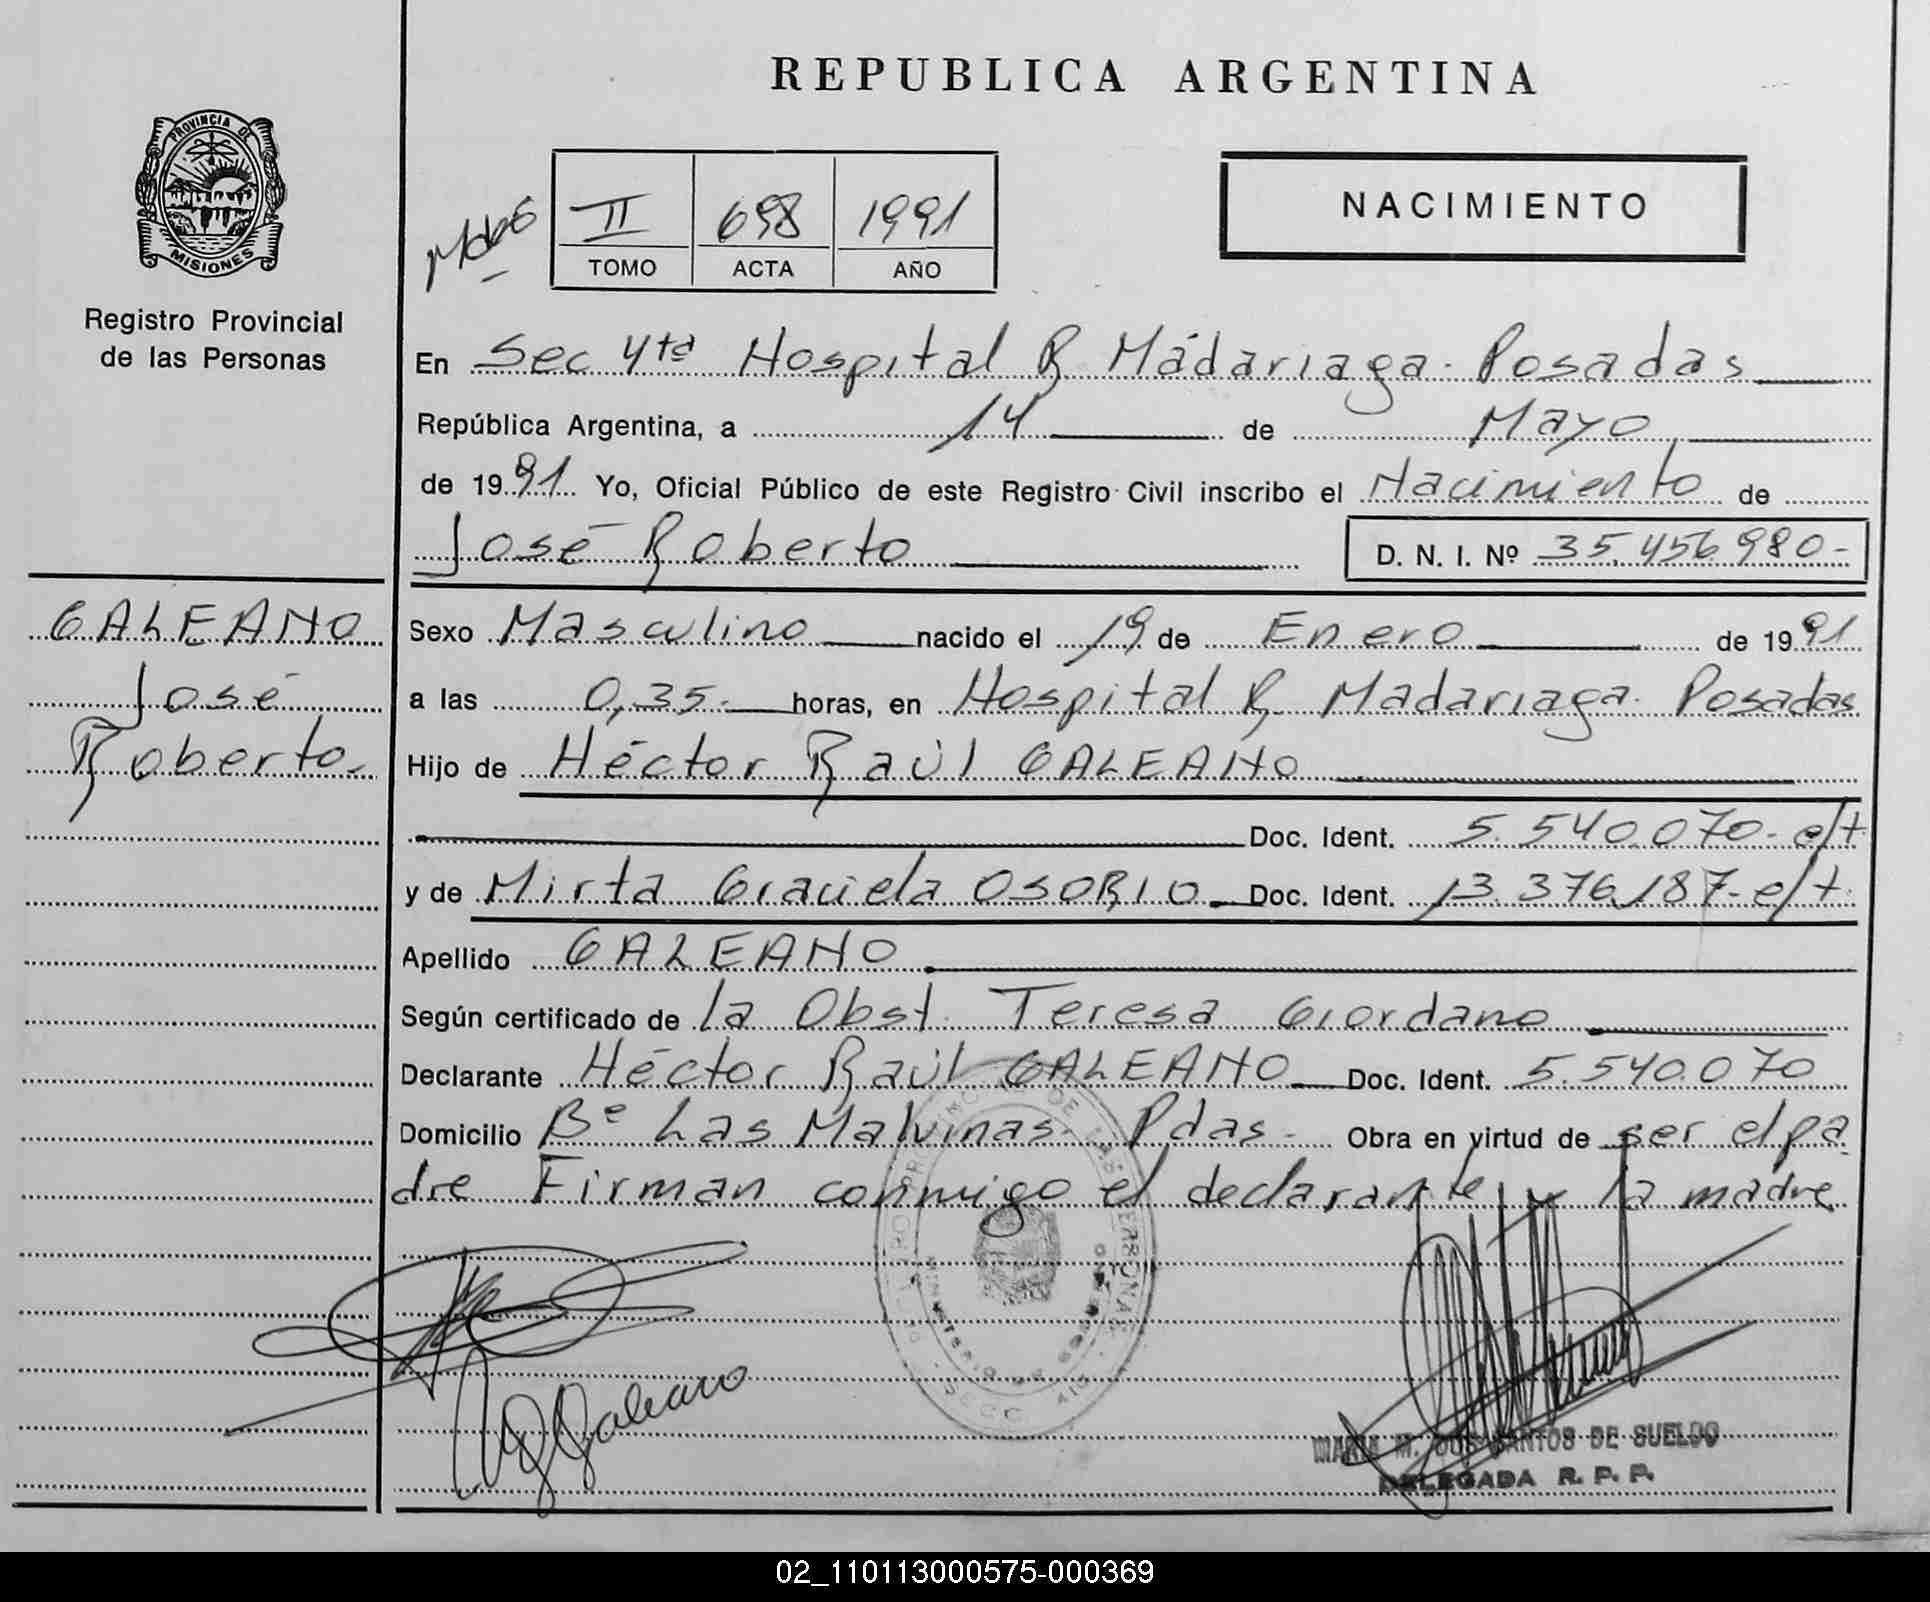 REPUBLICA ARGENTINA
PROVINCIA DE
MISIONES
Registro Provincial
de las Personas
II 698 1991
TOMO ACTA AÑO
NACIMIENTO
En Sec 4ta Hospital R Madariaga - Posadas
República Argentina, a 14 de Mayo
de 1991 Yo, Oficial Público de este Registro Civil inscribo el Nacimiento de
José Roberto D. N. I. Nº 35.456.980-
GALEANO
José
Roberto-
Sexo Masculino nacido el 19 de Enero de 1991
a las 0,35.- horas, en Hospital R. Madariaga - Posadas
Hijo de Héctor Raúl GALEANO
Doc. Ident. 5.540.070- e/t.
y de Mirta Graciela OSORIO. Doc. Ident. 13.376.187- e/t.
Apellido GALEANO
Según certificado de la Obst. Teresa Giordano
Declarante Héctor Raúl GALEANO Doc. Ident. 5.540.070
Domicilio Bº Las Malvinas - Pdas - Obra en virtud de ser el pa
dre Firman conmigo el declarante y la madre
Galeano
MARIA M. DOS SANTOS DE SUELDO
DELEGADA R. P. P.
02_110113000575-000369